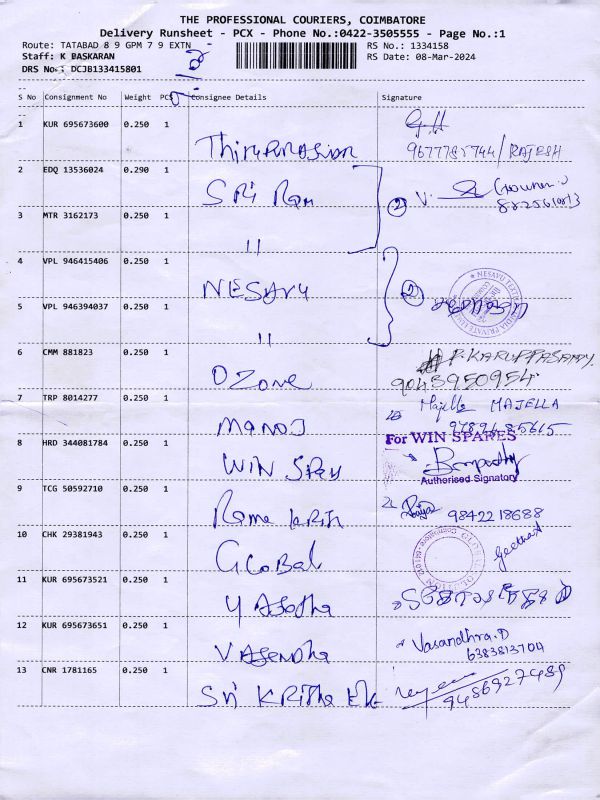 THE PROFESSIONAL COURIERS, COIMBATORE
Delivery Runsheet - PCX - Phone No.:0422-3505555 - Page No.:1
Route: TATABAD 8 9 GPM 7 9 EXTN
RS No.: 1334158
Staff: K BASKARAN
RS Date: 08-Mar-2024
DRS No.: DCJB133415801
S No Consignment No Weight PCS Consignee Details Signature
1 KUR 695673600 0.250 1
9677782744/RAJESH
2 EDQ 13536024 0.290 1 SRI Ram 2 V.
3 MTR 3162173 0.250 1 "
4 VPL 946415406 0.250 1 NESAVU 2
5 VPL 946394037 0.250 1 "
6 CMM 881823 0.250 1 OZone P.KARUPPASAMY.
9043950954
7 TRP 8014277 0.250 1 Manoj Majella MAJELLA
9789685615
8 HRD 344081784 0.250 1 WIN For WIN SPARES
Authorised Signatory
9 TCG 50592710 0.250 1 Rama 9842218688
10 CHK 29381943 0.250 1 GLOBal Geetha
11 KUR 695673521 0.250 1 Yasodha
12 KUR 695673651 0.250 1 Vasandhra.D
6383813704
13 CNR 1781165 0.250 1 Sri Krisha Ele
9486927489